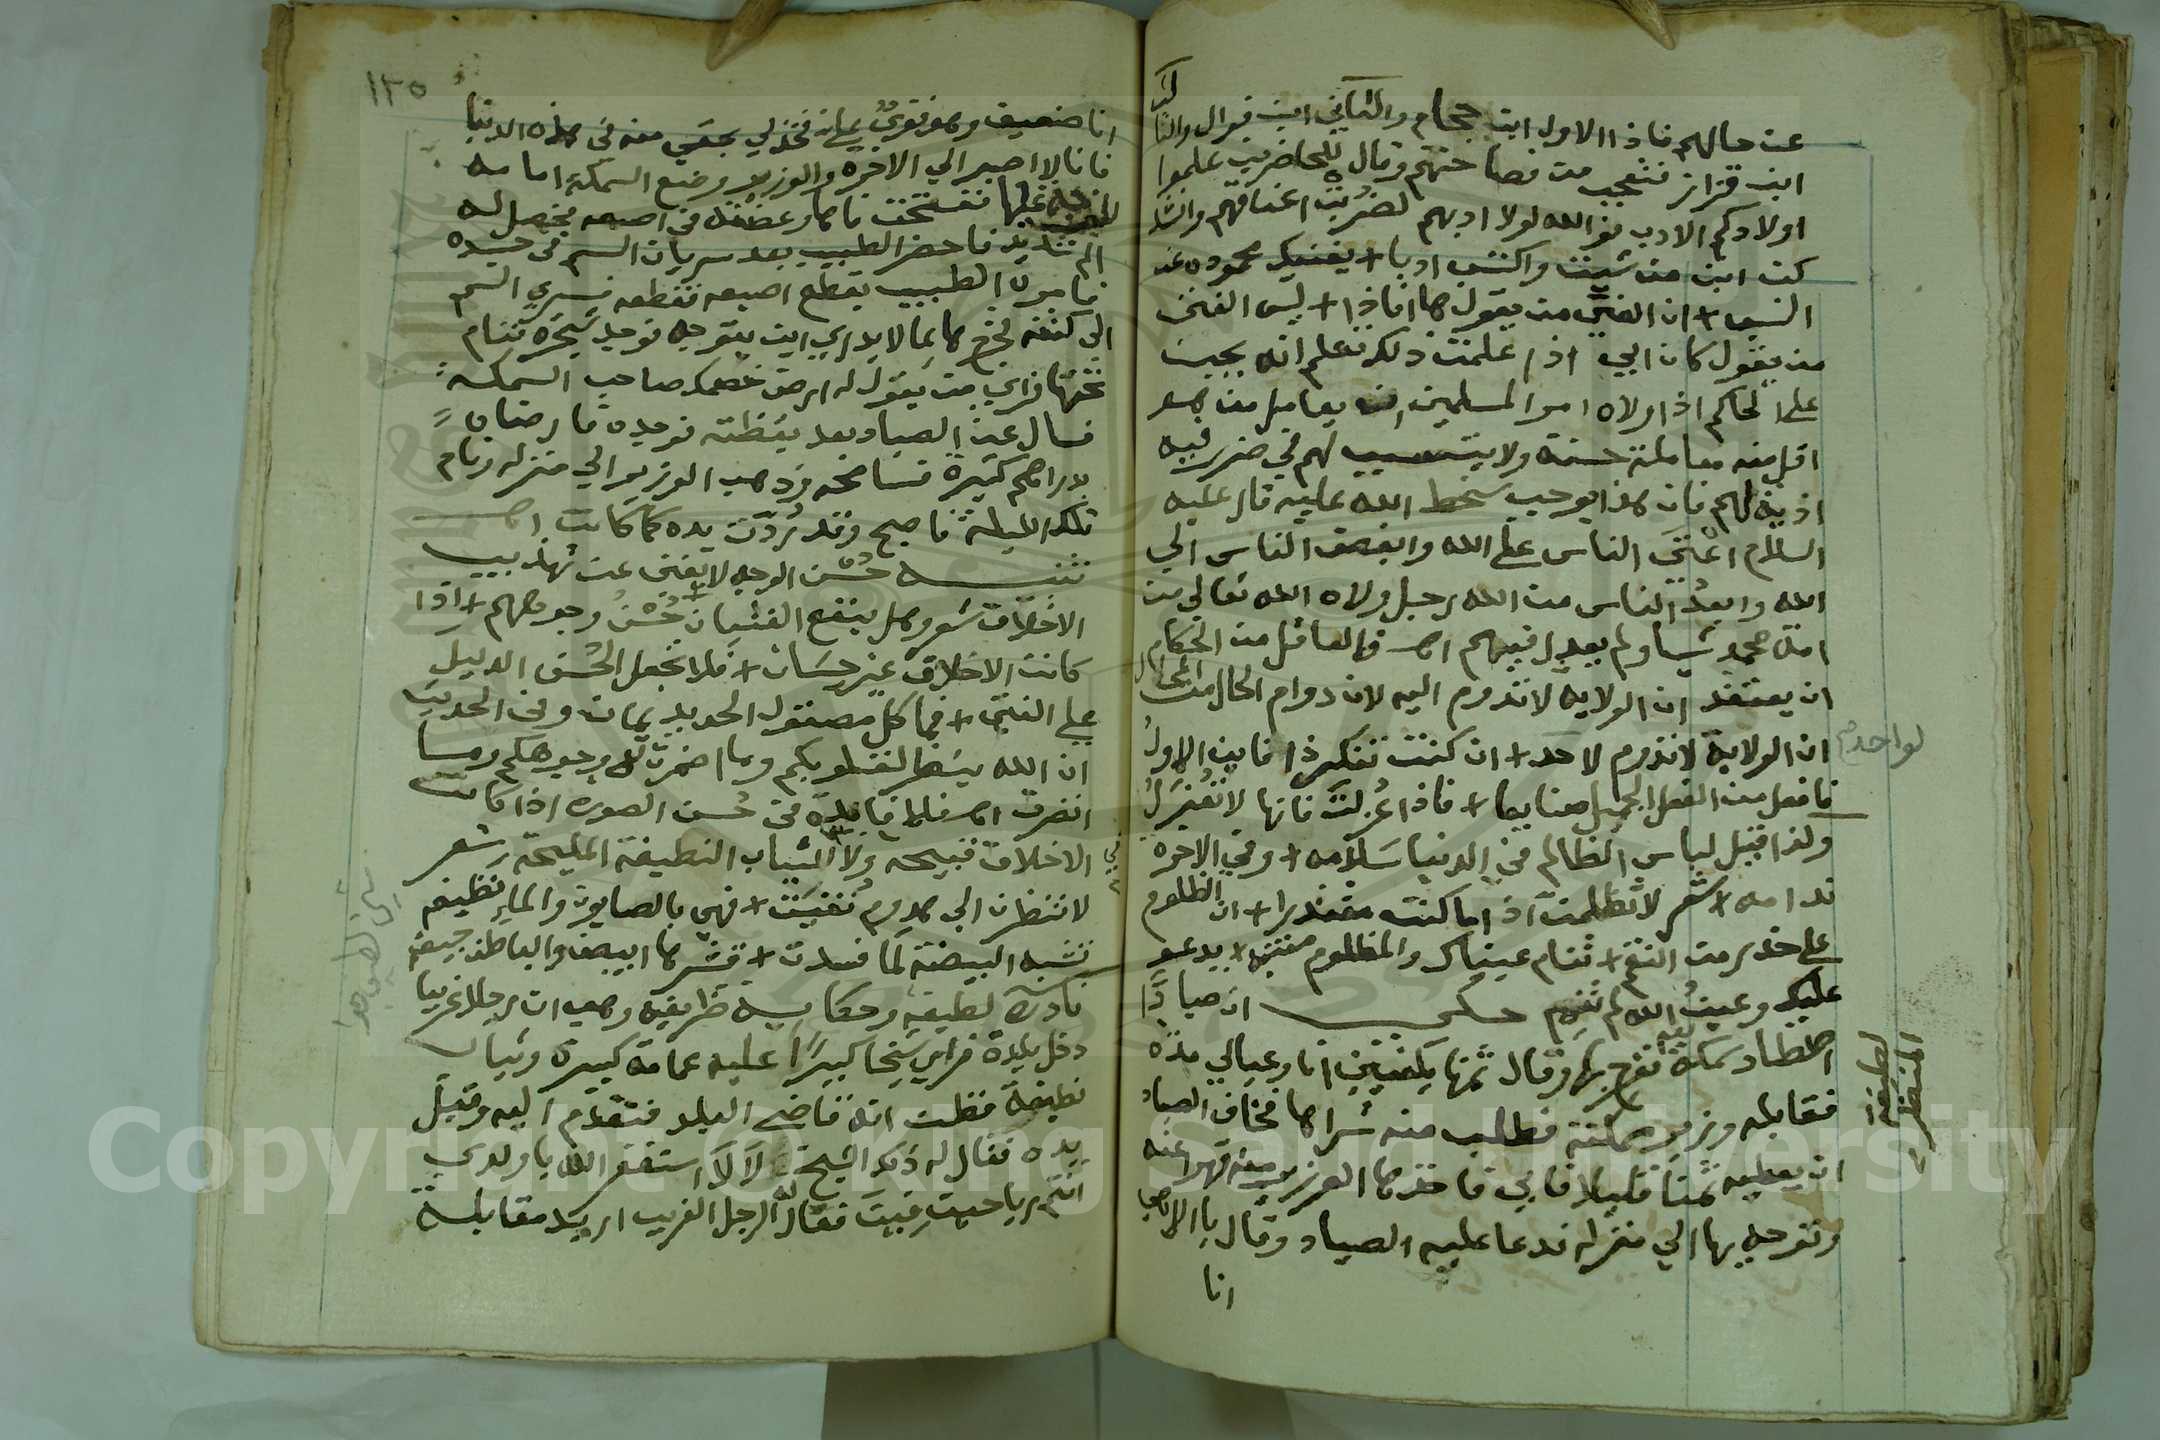 عن حالهم فاذا الاول ابن حجام والثاني ابن فوال والثالث
ابن قزاز فتعجب من فصاحتهم وقال للحاضرين علموا
اولادكم الادب فوالله لولا ادبهم لضربت اعناقهم وانشد
كن ابن من شيت واكتسب ادبا + يغنيك محموده عن
النسب + ان الفتى من يقول ها اناذا + ليس الفتى
من يقول كان ابي اذا علمت ذلك تعلم انه يجب
على الحاكم اذا ولاه امر المسلمين ان يعامل من هو
اقل منه معاملة حسنة ولا يتسبب لهم في ضرر فيه
اذية لهم فان هذا يوجب سخط الله عليه قال عليه
السلام اعتى الناس على الله وابغض الناس الي
الله وابعد الناس من الله رجل ولاه الله تعالى من
امة محمد شيا ولم يعدل فيهم اهـ فالعاقل من الحكام
ان يعتقد ان الولاية لا تدوم اليه لان دوام الحال من المحال
ان الولاية لا تدوم لاحد + ان كنت تنكر ذا فاين الاول
لواحد
فافعل من الفعل الجميل صنايعا + فاذا عزلت فانها لا تعزل
ولذا قيل لباس الظالم في الدنيا سلامه + وفي الاخرة
ندامه + شعر لا تظلمن اذا ما كنت مقتدرا + ان الظلوم
على حذر من النقم + تنام عيناك والمظلوم منتبه + يدعو
عليك وعين الله لم تنم حكي ان صيادا
لطيفة
انظر
اصطاد سمكة ففرح بها وقال ثمنها يكفيني انا وعيالي مدة
فقابله وزير مكنه فطلب منه شراها فخاف الصياد
ان يعطيه ثمنا قليلا فابى فاخذها الوزير منه قهرا عنه
وتوجه بها الي منزله فدعا عليه الصياد وقال يا الاهي
انا
١٣٥
انا ضعيف وهو قوي علي فخذ لي بحقي منه في هذه الدنيا
فانا لا اصبر الي الاخره والوزير وضع السمكة امامه
عليها ففتحت فاها وعضته في اصبعه فحصل له
الم شديد فاحضر الطبيب بعد سريان السم في جسده
فامره الطبيب بقطع اصبعه فقطعه فسري السم
الى كتفه فخرج هايما لا يدري اين يتوجه فوجد شجرة فنام
تحتها فراي من يقول له ارض خصمك صاحب السمكة
فسال عن الصياد بعد يقظته فوجده فارضاه
بدراهم كثيرة فسامحه وذهب الوزير الي منزله ونام
تلك الليلة فاصبح وقد ردت يده كما كانت اهـ
تنبيه حسن الوجه لا يغني عن تهذيب
الاخلاق شعر وهل ينفع الفتيان حسن وجوههم + اذا
كانت الاخلاق غير حسان + فلا تجعل الحسن الدليل
على الفتى + فما كل مصقول الحديد يمان وفي الحديث
ان الله ينظر لقلوبكم وما اضمرت لا وجوهكم وما
اظهرت اهـ فلا فايدة في حسن الصورة اذا كانت
الاخلاق قبيحه ولا في الثياب النظيفة المليحة شعر
لا تنظرن الى هدوم نقيت + فهي بالصابون والماء نظيفه
تشبه البيضة لما فسدت + قشرها ابيض والباطن جيفه
نادرة لطيفه وحكاية ظريفة وهي ان رجلا غريبا
دخل بلدة فراى شيخا كبيرا عليه عمامة كبيرة وثياب
نظيفة فظن انه قاضي البلد فتقدم اليه وقبل
يده فقال له ذلك الشيخ لا لا استغفر الله يا ولدي
انتم رياحين فين فقال له الرجل الغريب اريد مقابلة